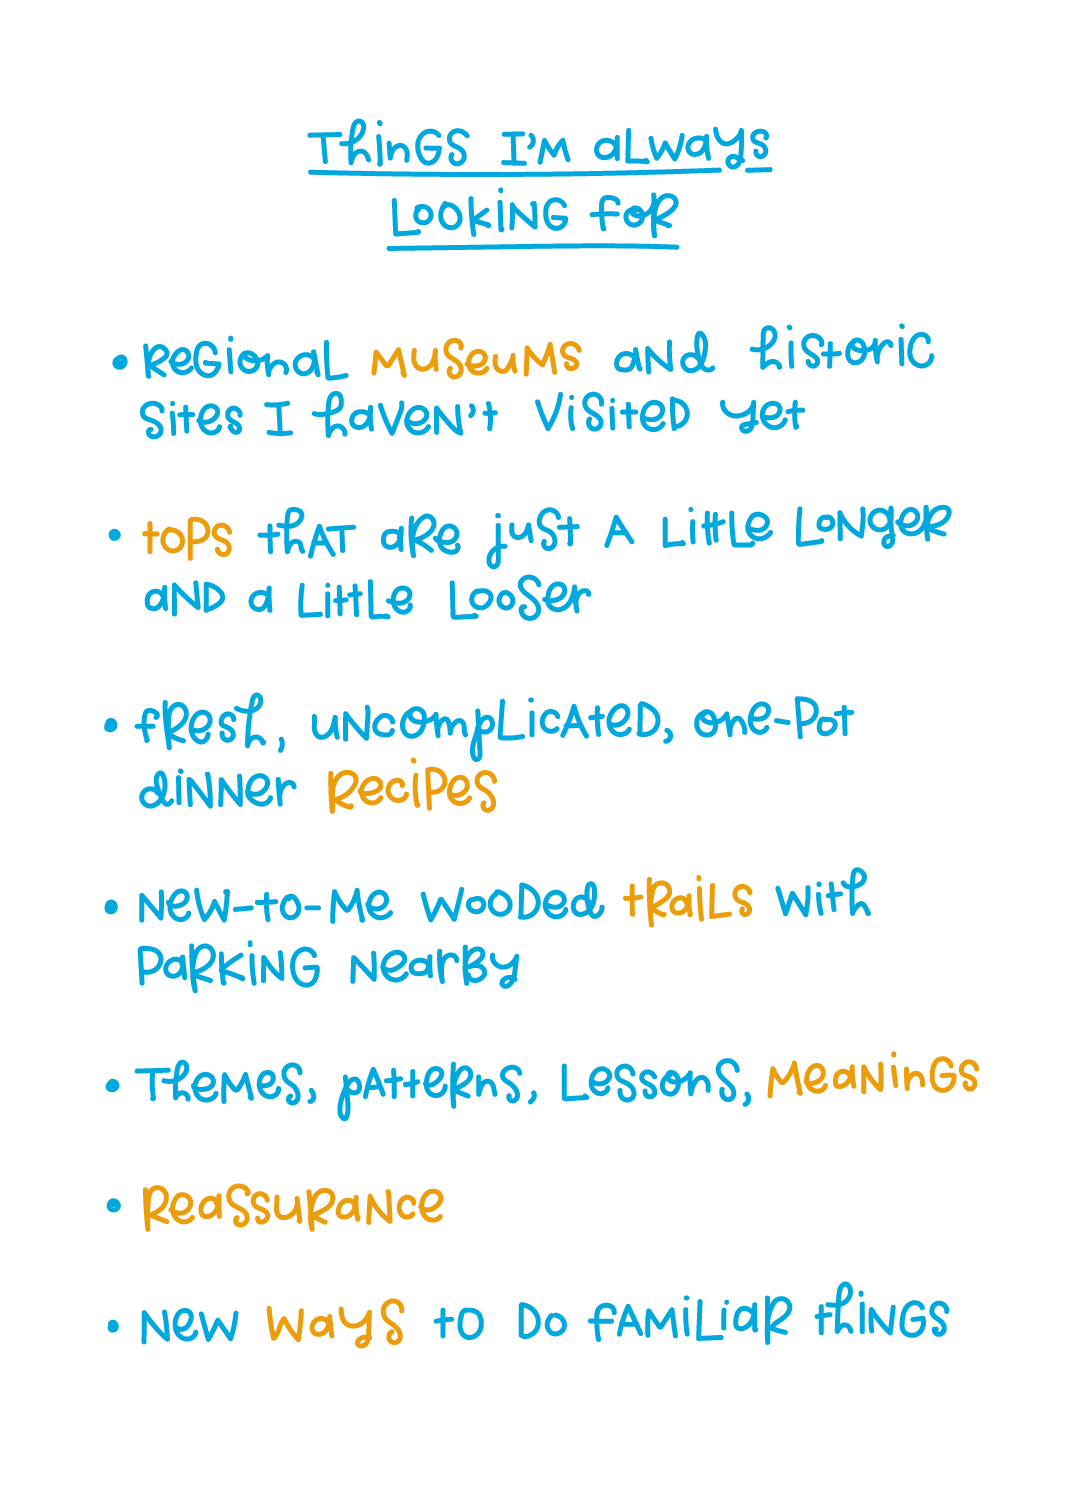 Things I'm always
looking for
• Regional museums and historic
sites I haven't visited yet
• tops that are just a little longer
and a little looser
• fresh, uncomplicated, one-pot
dinner recipes
• new-to-me wooded trails with
parking nearby
• Themes, patterns, lessons, meanings
• Reassurance
• new ways to do familiar things